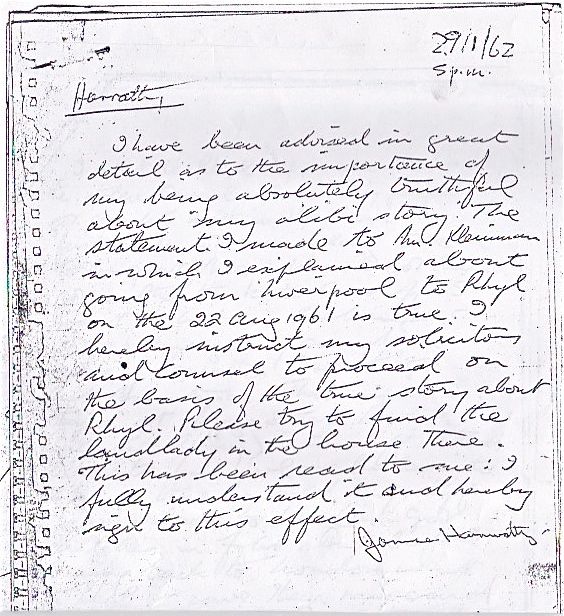 29/1/62
5 p.m.
Hanratty,
I have been advised in great
detail as to the importance of
my being absolutely truthful
about my alibi story. The
statement I made to Mr. Kleinman
in which I explained about
going from Liverpool to Rhyl
on the 22 Aug 1961 is true. I
hereby instruct my solicitors
and counsel to proceed on
the basis of the true story about
Rhyl. Please try to find the
landlady in the house there.
This has been read to me: I
fully understand it and hereby
sign to this effect.
James Hanratty